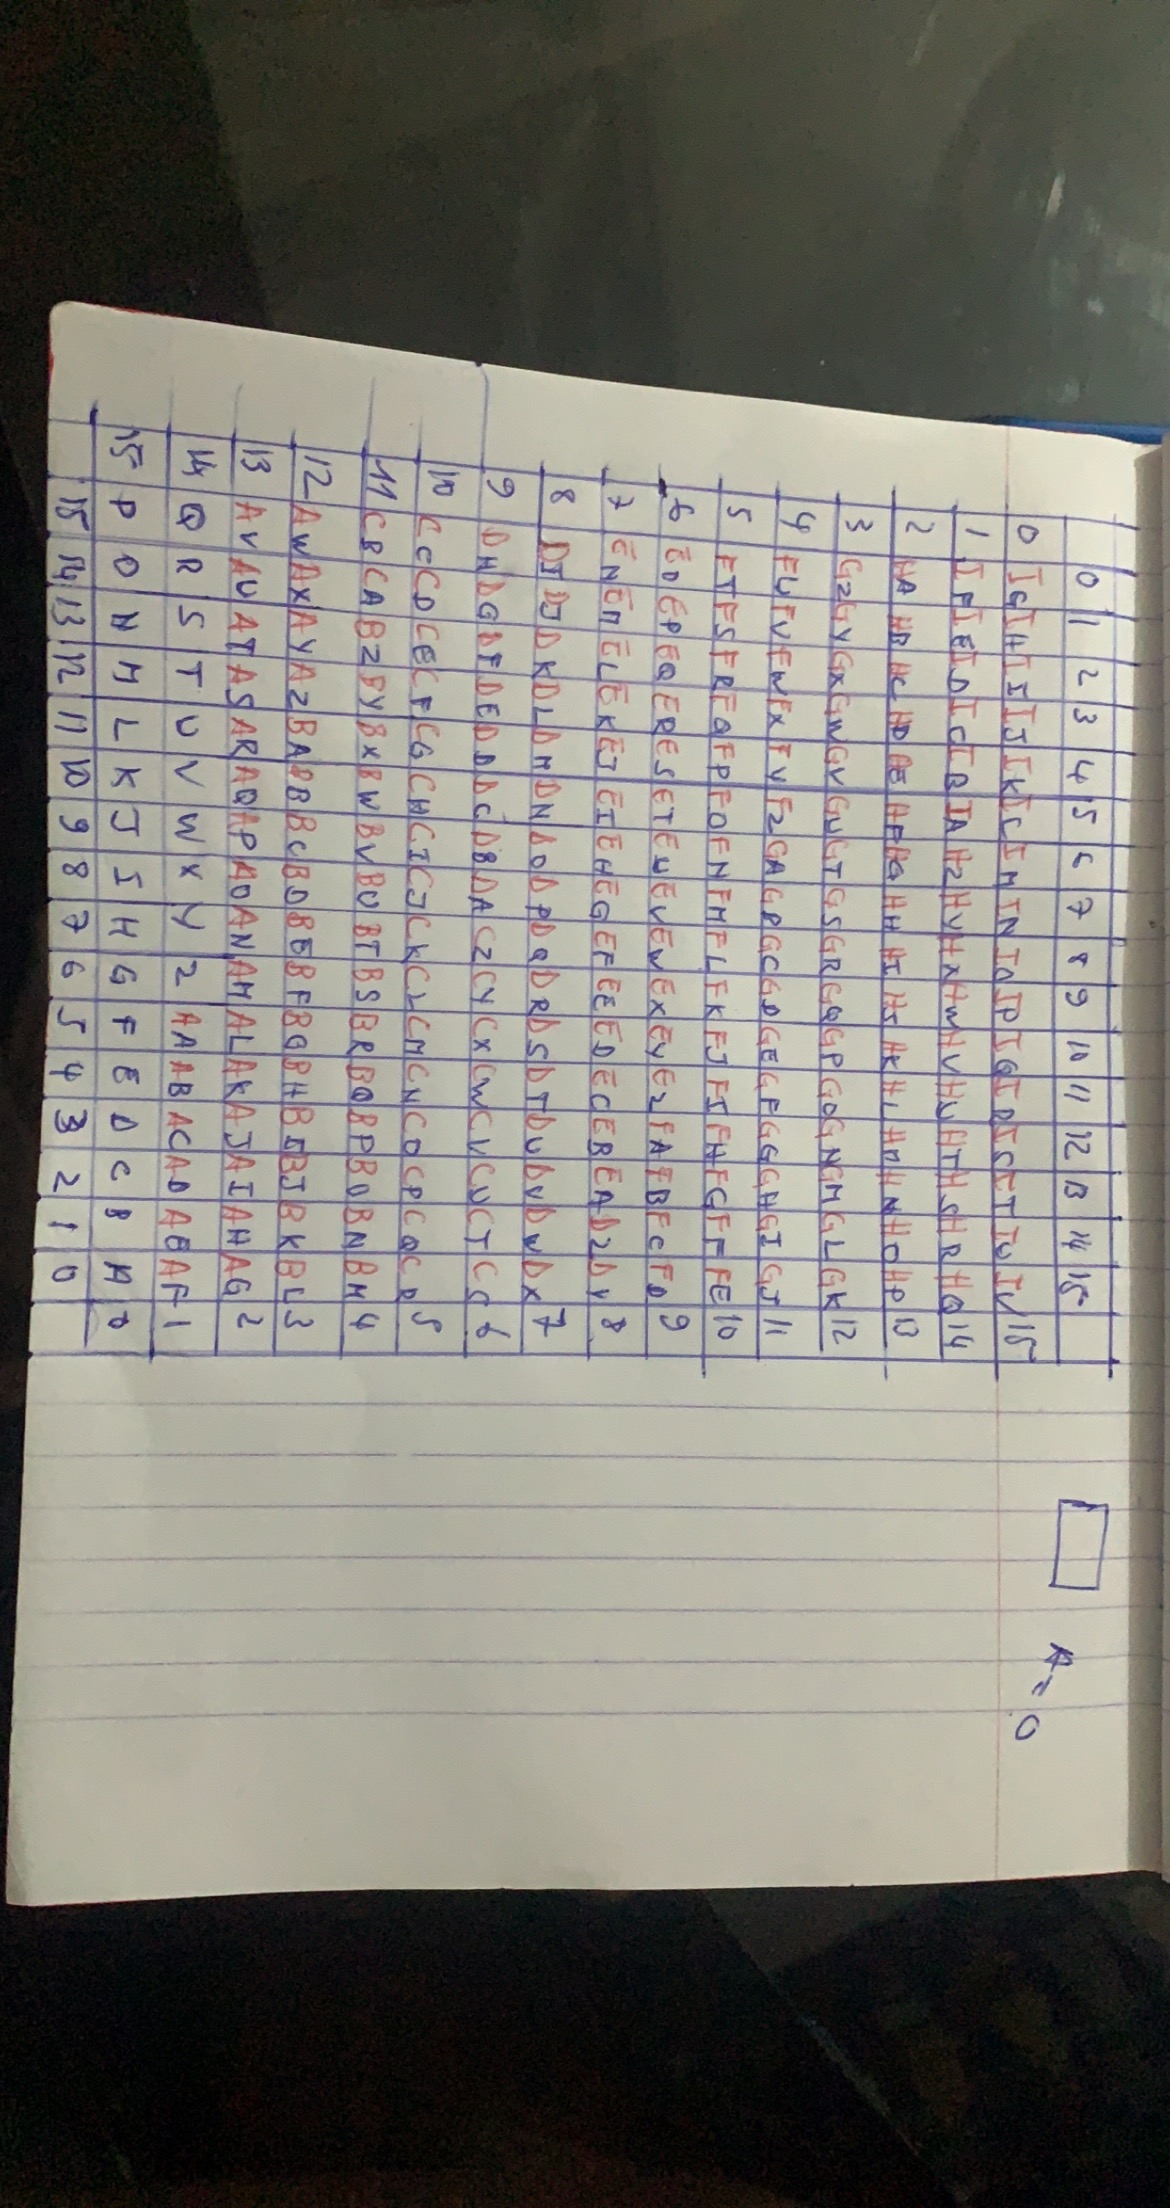 0 1 2 3 4 5 6 7 8 9 10 11 12 13 14 15
0 IG IH II IJ IK IL IM IN IO IP IQ IR IS IT IU IV 15
1 IF IE ID IC IB IA HZ HY HX HW HV HU HT HS HR HQ 14
2 HA HB HC HD HE HF HG HH HI HJ HK HL HM HN HO HP 13
3 GZ GY GX GW GV GU GT GS GR GQ GP GO GN GM GL GK 12
4 FU FV FW FX FY FZ GA GB GC GD GE GF GG GH GI GJ 11
5 FT FS FR FQ FP FO FN FM FL FK FJ FI FH FG FF FE 10
6 EO EP EQ ER ES ET EU EV EW EX EY EZ FA FB FC FD 9
7 EN EM EL EK EJ EI EH EG EF EE ED EC EB EA DZ DY 8
8 DI DJ DK DL DM DN DO DP DQ DR DS DT DU DV DW DX 7
9 DH DG DF DE DD DC DB DA CZ CY CX CW CV CU CT CS 6
10 CC CD CE CF CG CH CI CJ CK CL CM CN CO CP CQ CR 5
11 CB CA BZ BY BX BW BV BU BT BS BR BQ BP BO BN BM 4
12 AW AX AY AZ BA BB BC BD BE BF BG BH BI BJ BK BL 3
13 AV AU AT AS AR AQ AP AO AN AM AL AK AJ AI AH AG 2
14 Q R S T U V W X Y Z AA AB AC AD AE AF 1
15 P O N M L K J I H G F E D C B A 0
15 14 13 12 11 10 9 8 7 6 5 4 3 2 1 0
A = 0